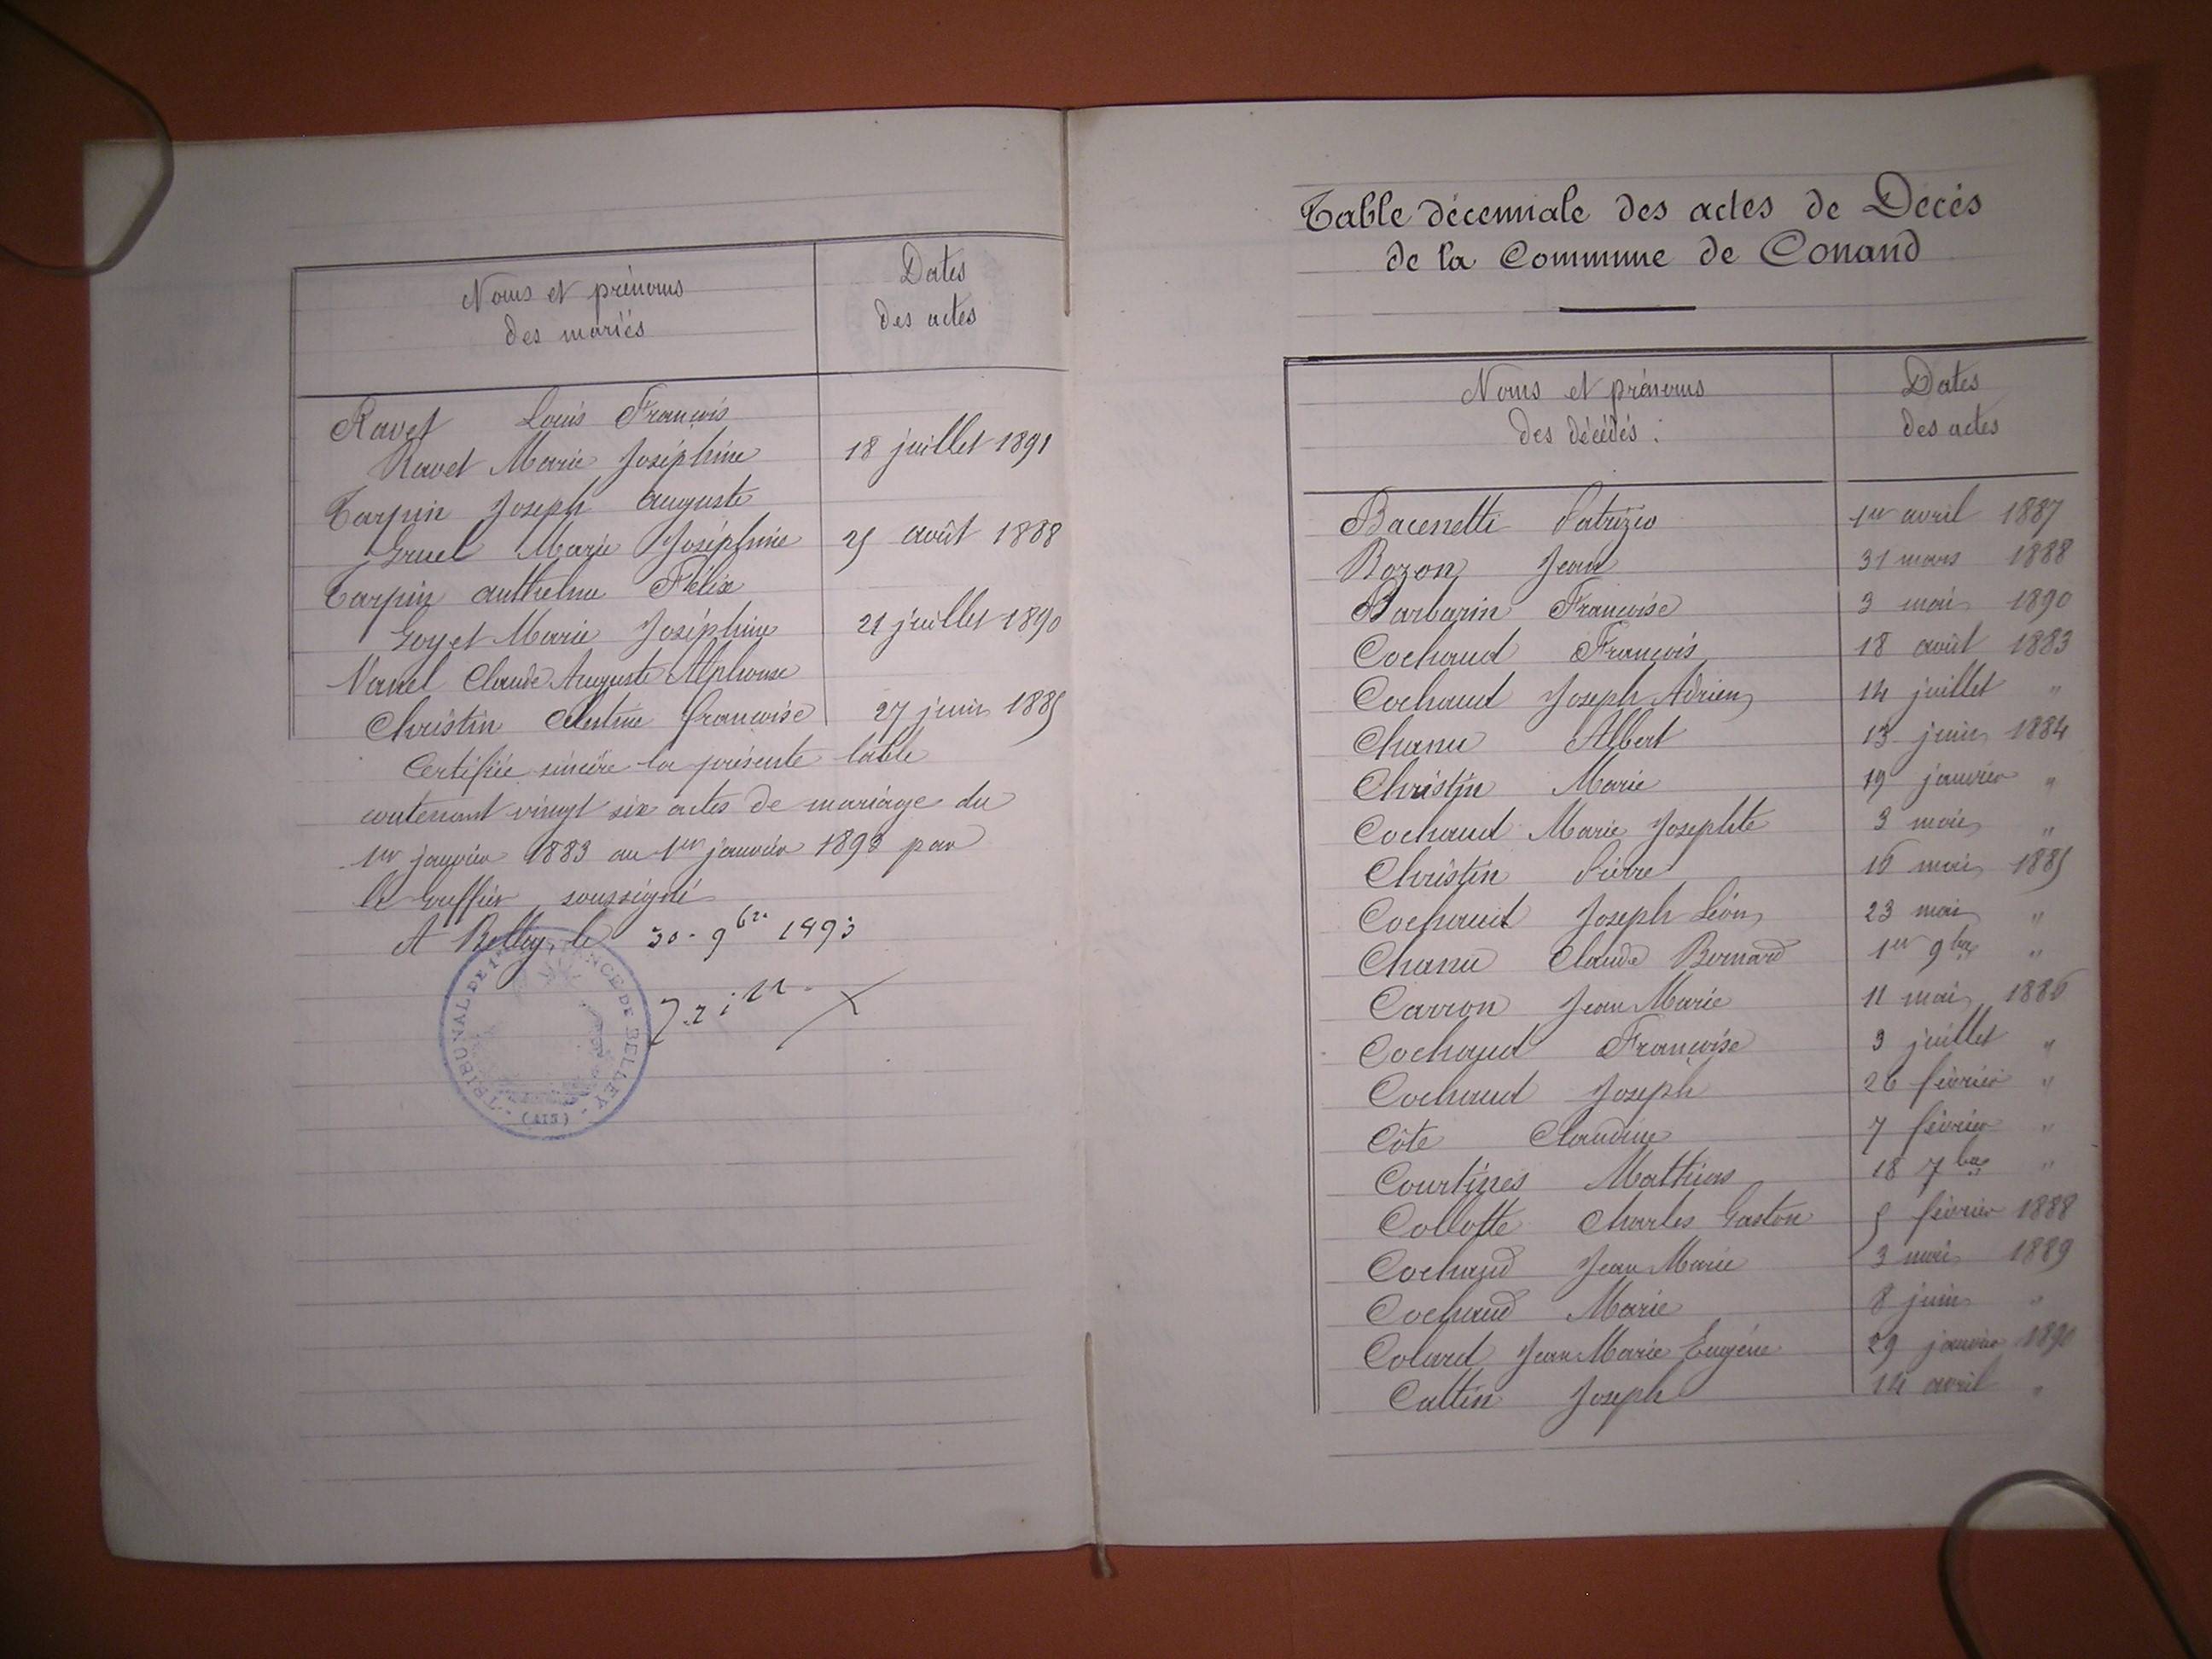 Noms et prénoms
des mariés
Dates
des actes
Ravet Louis François
Ravet Marie Joséphine 18 juillet 1891
Tarpin Joseph Auguste
Gruel Marie Joséphine 25 août 1888
Tarpin Anthelme Félix
Goyet Marie Joséphine 21 juillet 1890
Vanel Claude Auguste Alphonse
Christin Célestine Françoise 27 juin 1885
Certifiée sincère la présente table
contenant vingt six actes de mariage du
1er janvier 1883 au 1er janvier 1893 par
le Greffier soussigné
A Belley, le 30 - 9bre 1893
TRIBUNAL DE 1ère INSTANCE DE BELLEY
(AIN)
Table décennale des actes de Décès
de la Commune de Conand
Noms et prénoms
des décédés :
Dates
des actes
Bacenetti Patrizio 1er avril 1887
Bozon Jean 31 mars 1888
Barbarin Françoise 3 mai 1890
Cochaud François 18 août 1883
Cochaud Joseph Adrien 14 juillet "
Chanu Albert 13 juin 1884
Christin Marie 19 janvier "
Cochaud Marie Josephte 3 mai "
Christin Pierre 16 mai 1885
Cochaud Joseph Léon 23 mai "
Chanu Claude Bernard 1er 9bre "
Carron Jean Marie 11 mai 1886
Cochaud Françoise 3 juillet "
Cochaud Joseph 26 février "
Côte Claudine 7 février "
Courtines Mathias 18 7bre "
Collotte Charles Gaston 5 février 1888
Cochaud Jean Marie 3 mai 1889
Cochaud Marie 8 juin "
Colard Jean Marie Eugène 29 janvier 1890
Cattin Joseph 14 avril "